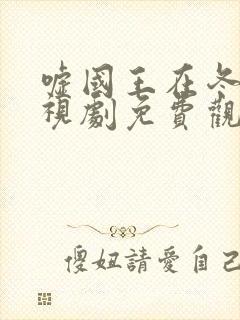 噓國王在冬
視劇免費觀
傻妞請愛自己